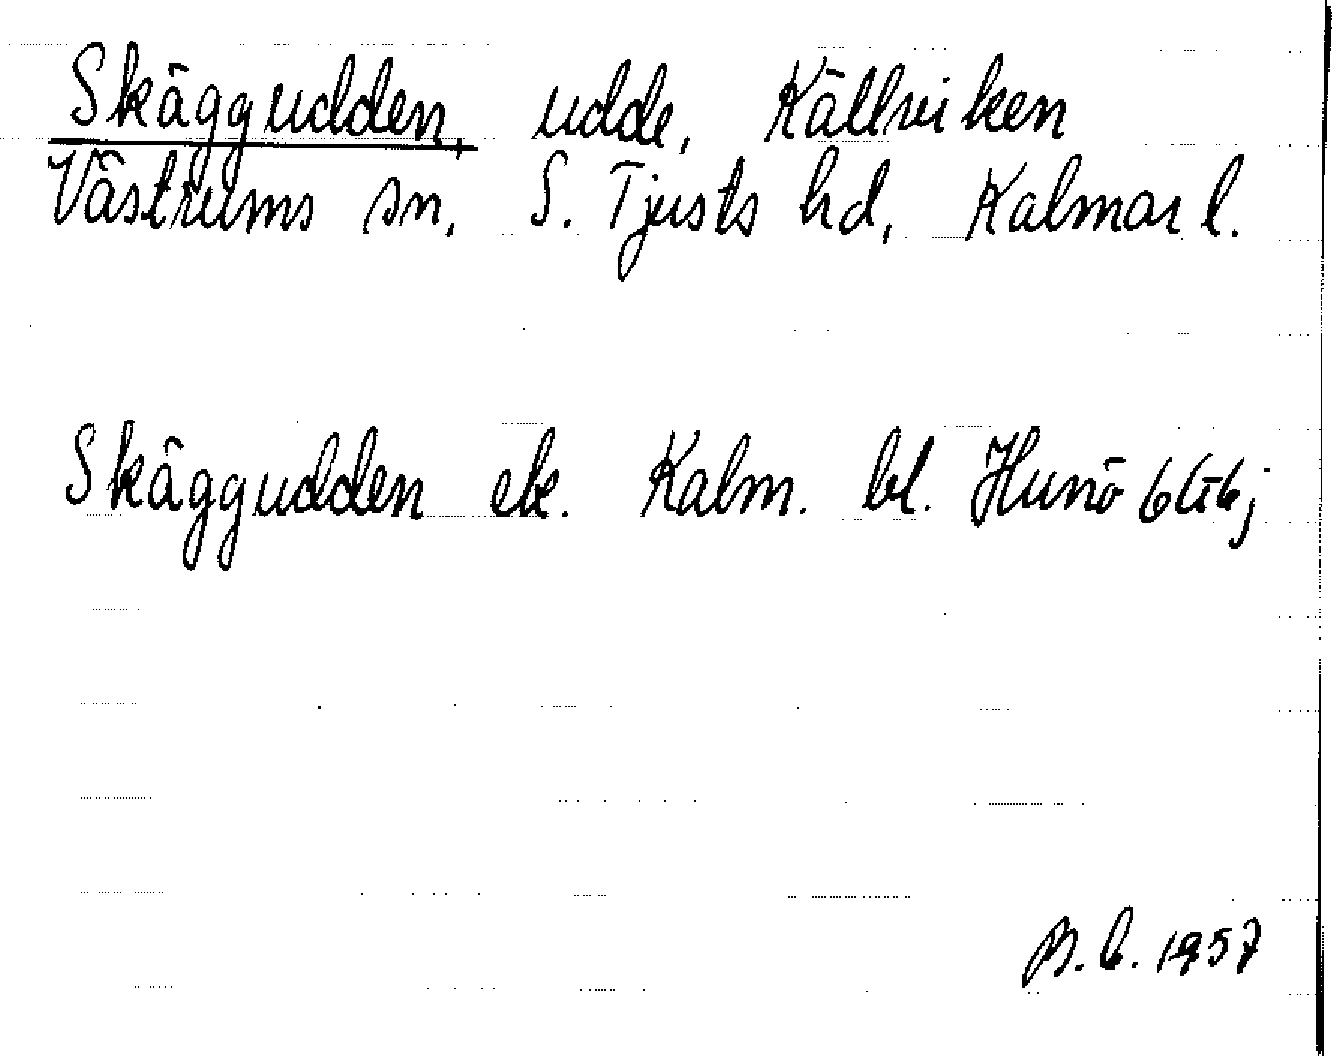 Skäggudden, udde, Källviken
Västrums sn, S. Tjusts hd, Kalmar l.
Skäggudden ek. Kalm. bl. Hunö
1957